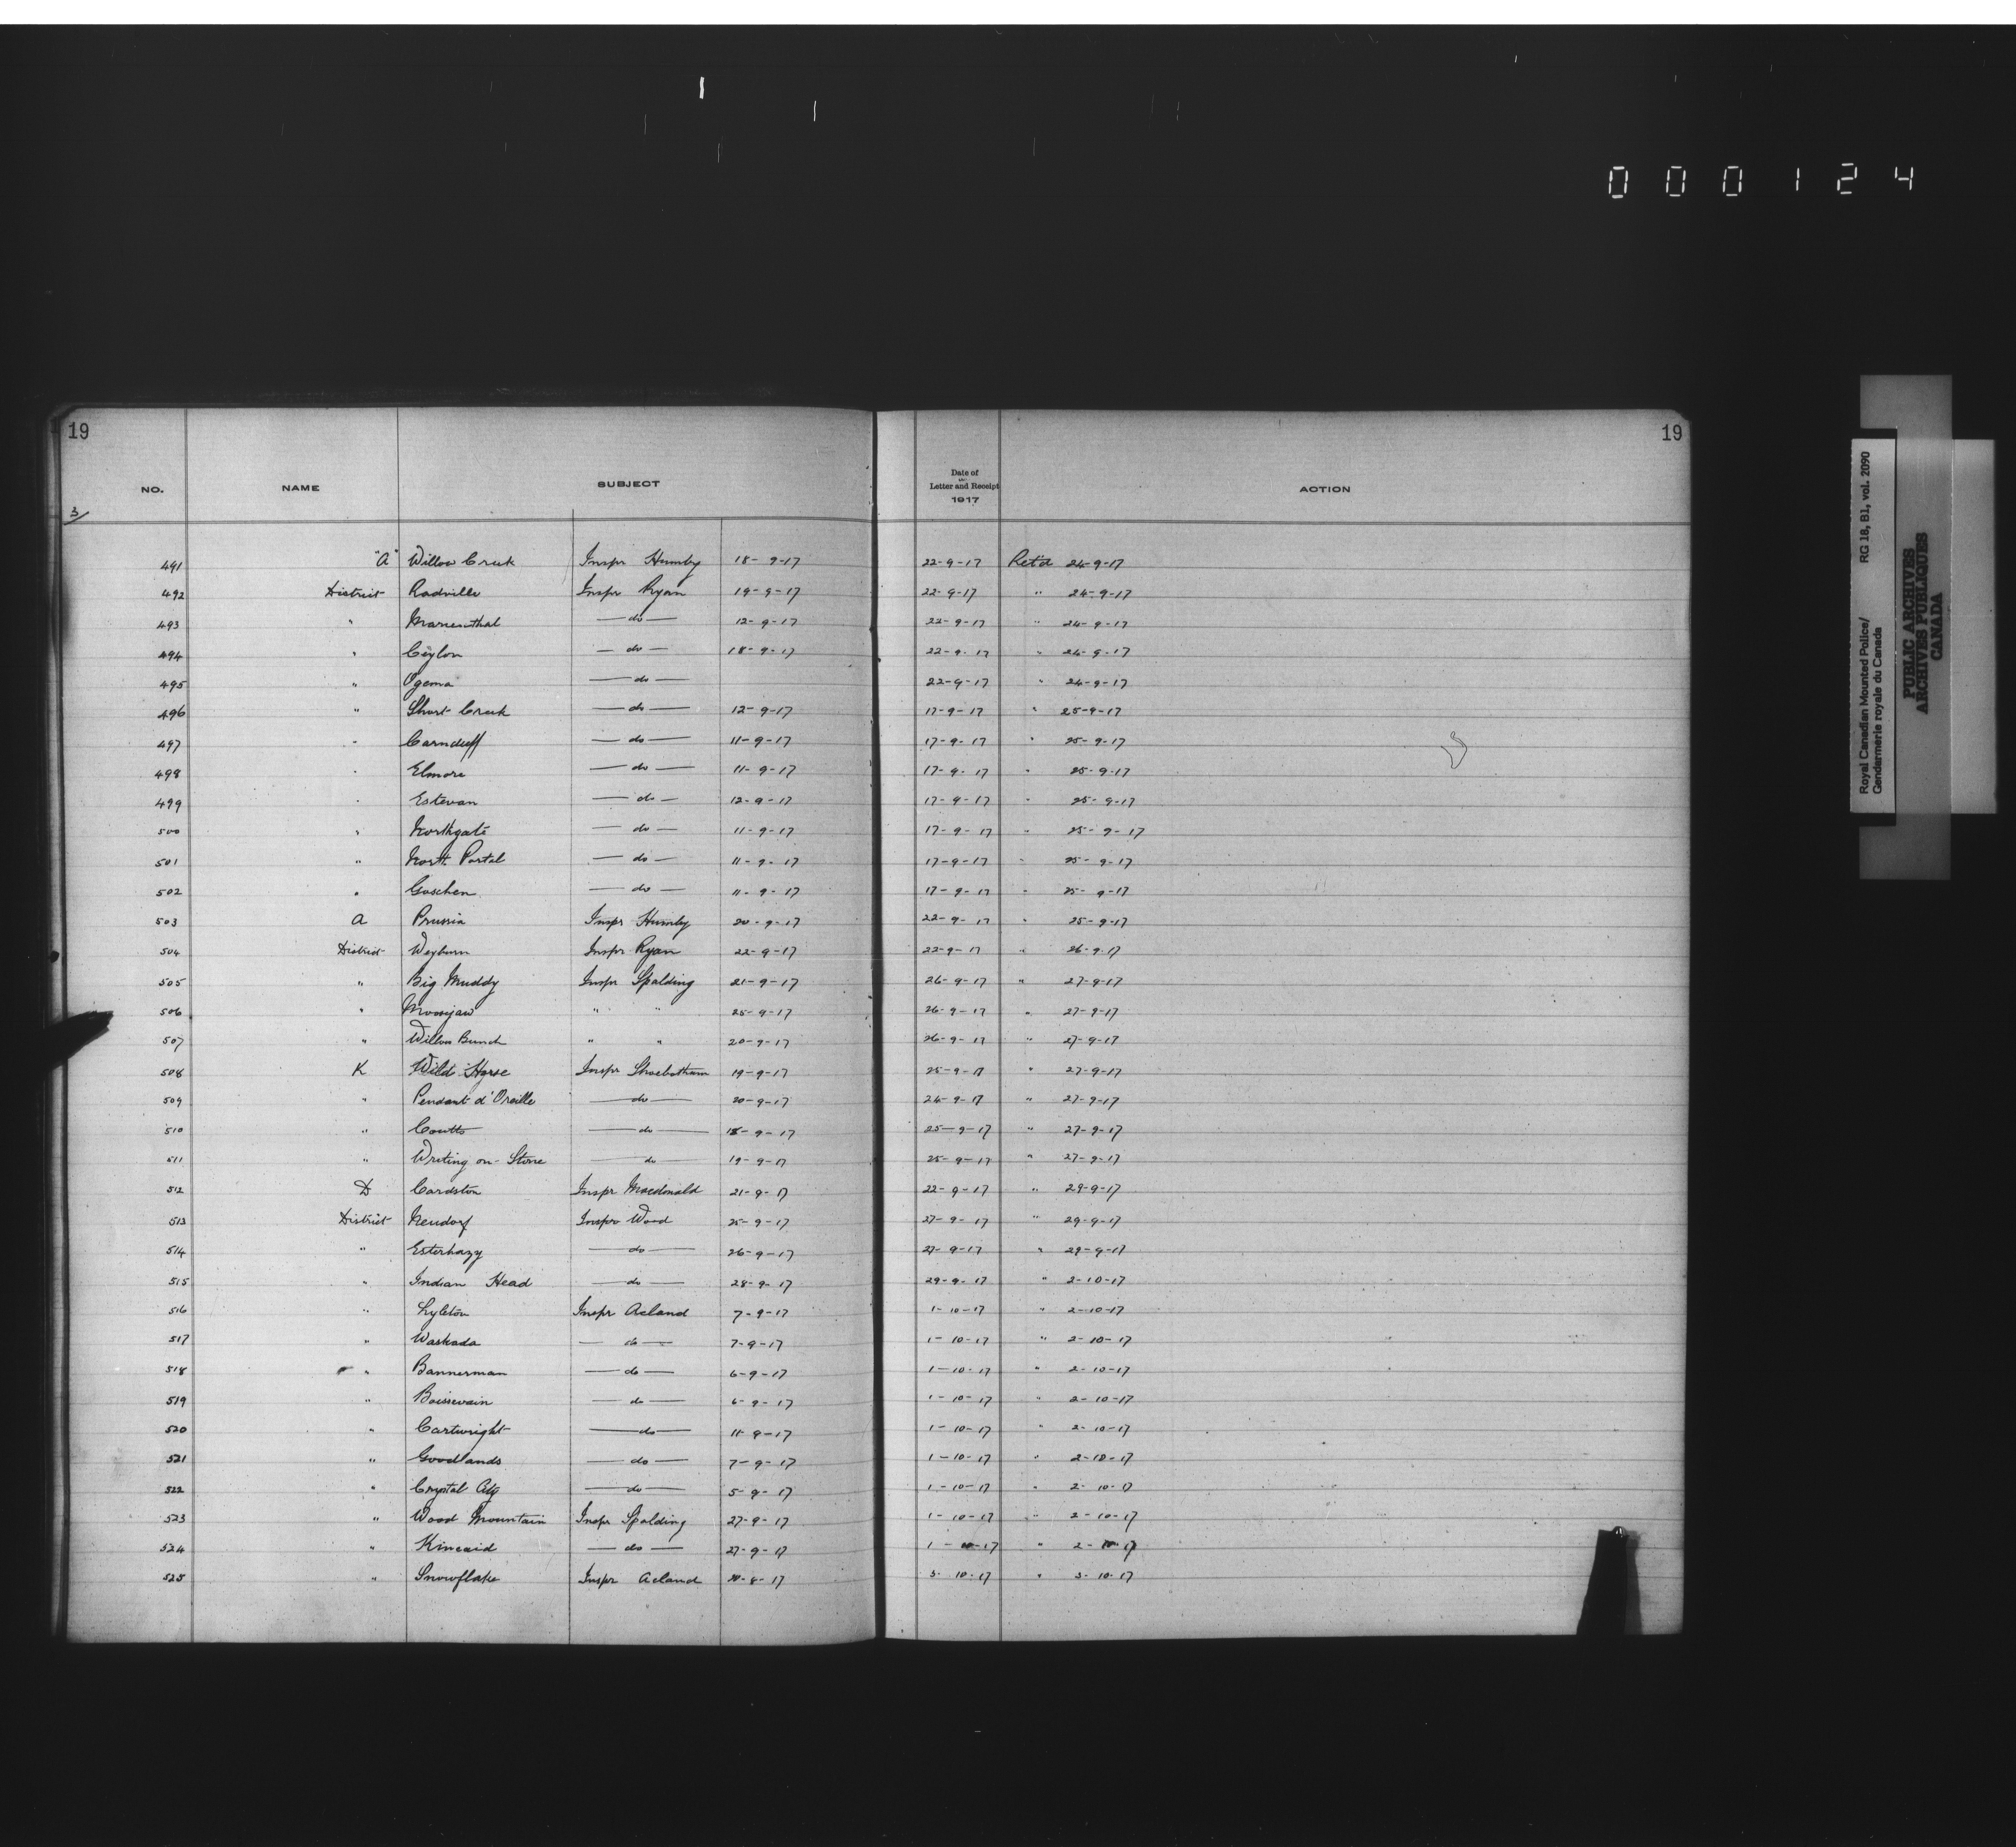 000124
19 19
NO. NAME SUBJECT Date of Letter and Receipt 1917 ACTION
3/
491 "A" Willow Creek Inspr Humby 18-9-17 22-9-17 Ret'd 24-9-17
492 District Radville Inspr Ryan 19-9-17 22-9-17 " 24-9-17
493 " Marienthal — do — 12-9-17 22-9-17 " 24-9-17
494 " Ceylon — do — 18-9-17 22-9-17 " 24-9-17
495 " Ogema — do — 22-9-17 " 24-9-17
496 " Short Creek — do — 12-9-17 17-9-17 " 25-9-17
497 " Carnduff — do — 11-9-17 17-9-17 " 25-9-17
498 " Elmore — do — 11-9-17 17-9-17 " 25-9-17
499 " Estevan — do — 12-9-17 17-9-17 " 25-9-17
500 " Northgate — do — 11-9-17 17-9-17 " 25-9-17
501 " North Portal — do — 11-9-17 17-9-17 " 25-9-17
502 " Goschen — do — 11-9-17 17-9-17 " 25-9-17
503 A Prussia Inspr Humby 20-9-17 22-9-17 " 25-9-17
504 District Weyburn Inspr Ryan 22-9-17 22-9-17 " 26-9-17
505 " Big Muddy Inspr Spalding 21-9-17 26-9-17 " 27-9-17
506 " Moosejaw " " 25-9-17 26-9-17 " 27-9-17
507 " Willow Bunch " " 20-9-17 26-9-17 " 27-9-17
508 K Wild Horse Inspr Shoebotham 19-9-17 25-9-17 " 27-9-17
509 " Pendant d'Oreille — do — 20-9-17 24-9-17 " 27-9-17
510 " Coutts — do — 18-9-17 25-9-17 " 27-9-17
511 " Writing on-Stone — do 19-9-17 25-9-17 " 27-9-17
512 D Cardston Inspr Macdonald 21-9-17 22-9-17 " 29-9-17
513 District Neudorf Inspr Wood 25-9-17 27-9-17 " 29-9-17
514 " Esterhazy — do — 26-9-17 27-9-17 " 29-9-17
515 " Indian Head — do — 28-9-17 29-9-17 " 2-10-17
516 " Lyleton Inspr Acland 7-9-17 1-10-17 " 2-10-17
517 " Waskada — do — 7-9-17 1-10-17 " 2-10-17
518 " Bannerman — do — 6-9-17 1-10-17 " 2-10-17
519 " Boissevain — do — 6-9-17 1-10-17 " 2-10-17
520 " Cartwright — do — 11-9-17 1-10-17 " 2-10-17
521 " Goodlands — do — 7-9-17 1-10-17 " 2-10-17
522 " Crystal City — do — 5-9-17 1-10-17 " 2-10-17
523 " Wood Mountain Inspr Spalding 27-9-17 1-10-17 " 2-10-17
524 " Kincaid — do — 27-9-17 1-10-17 " 2-10-17
525 " Snowflake Inspr Acland 3-10-17 " 3-10-17
Royal Canadian Mounted Police/ RG 18, B1, vol. 2090
Gendarmerie royale du Canada
PUBLIC ARCHIVES
ARCHIVES PUBLIQUES
CANADA